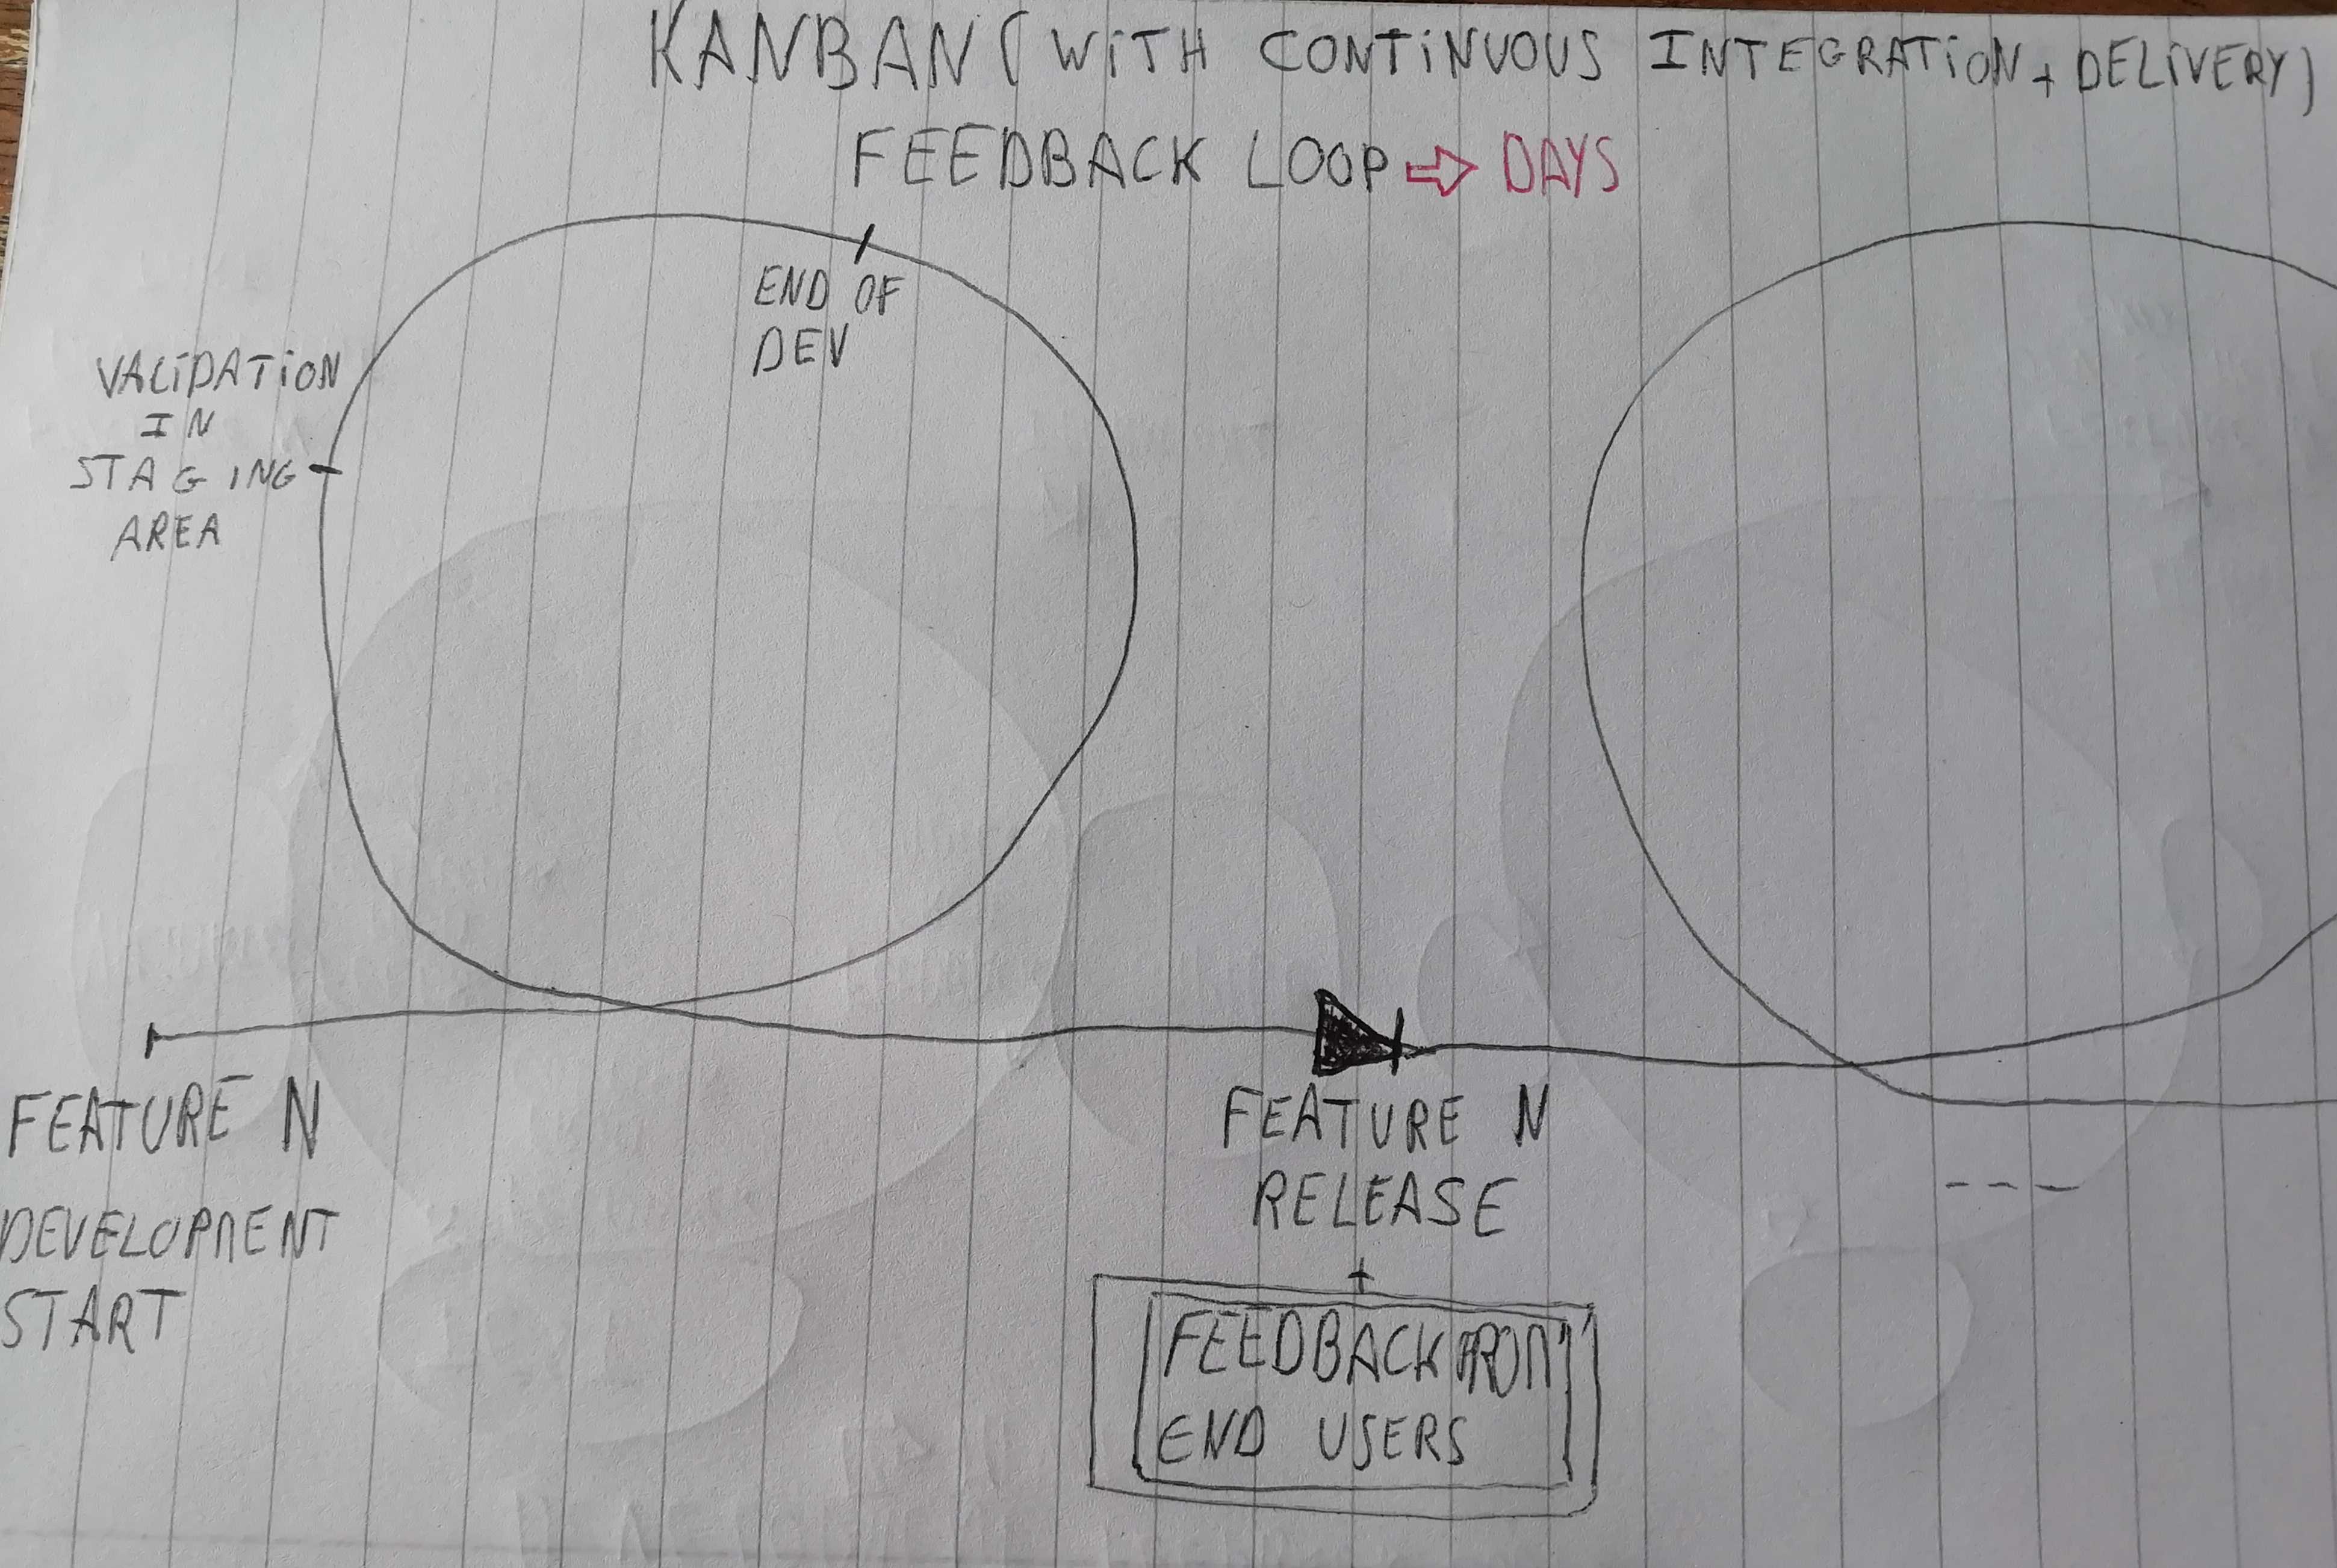 KANBAN (WITH CONTINUOUS INTEGRATION + DELIVERY)
FEEDBACK LOOP ⇨ DAYS
END OF
DEV
VALIDATION
IN
STAGING
AREA
FEATURE N
DEVELOPMENT
START
FEATURE N
RELEASE
+
FEEDBACK FROM
END USERS
---